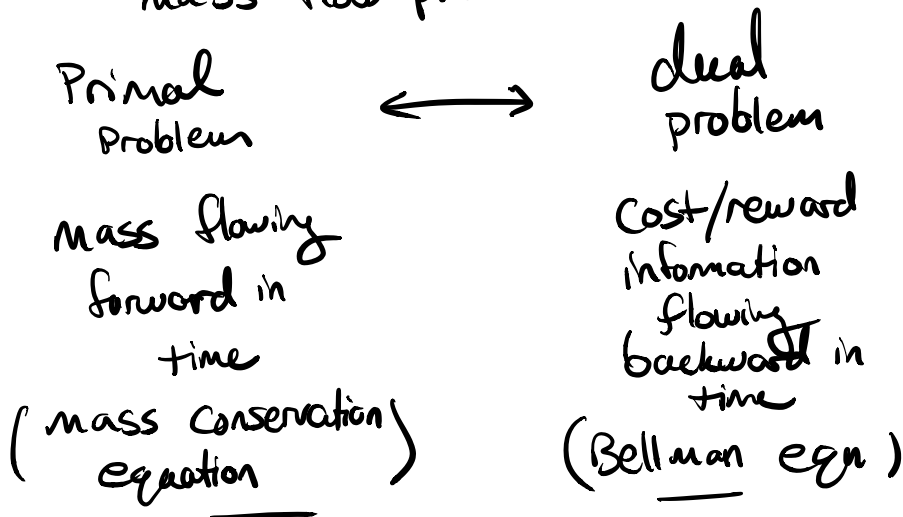 mass flow
Primal
Problem
dual
problem
mass flowing
forward in
time
(mass conservation
equation)
cost/reward
information
flowing
backward in
time
(Bellman eqn)